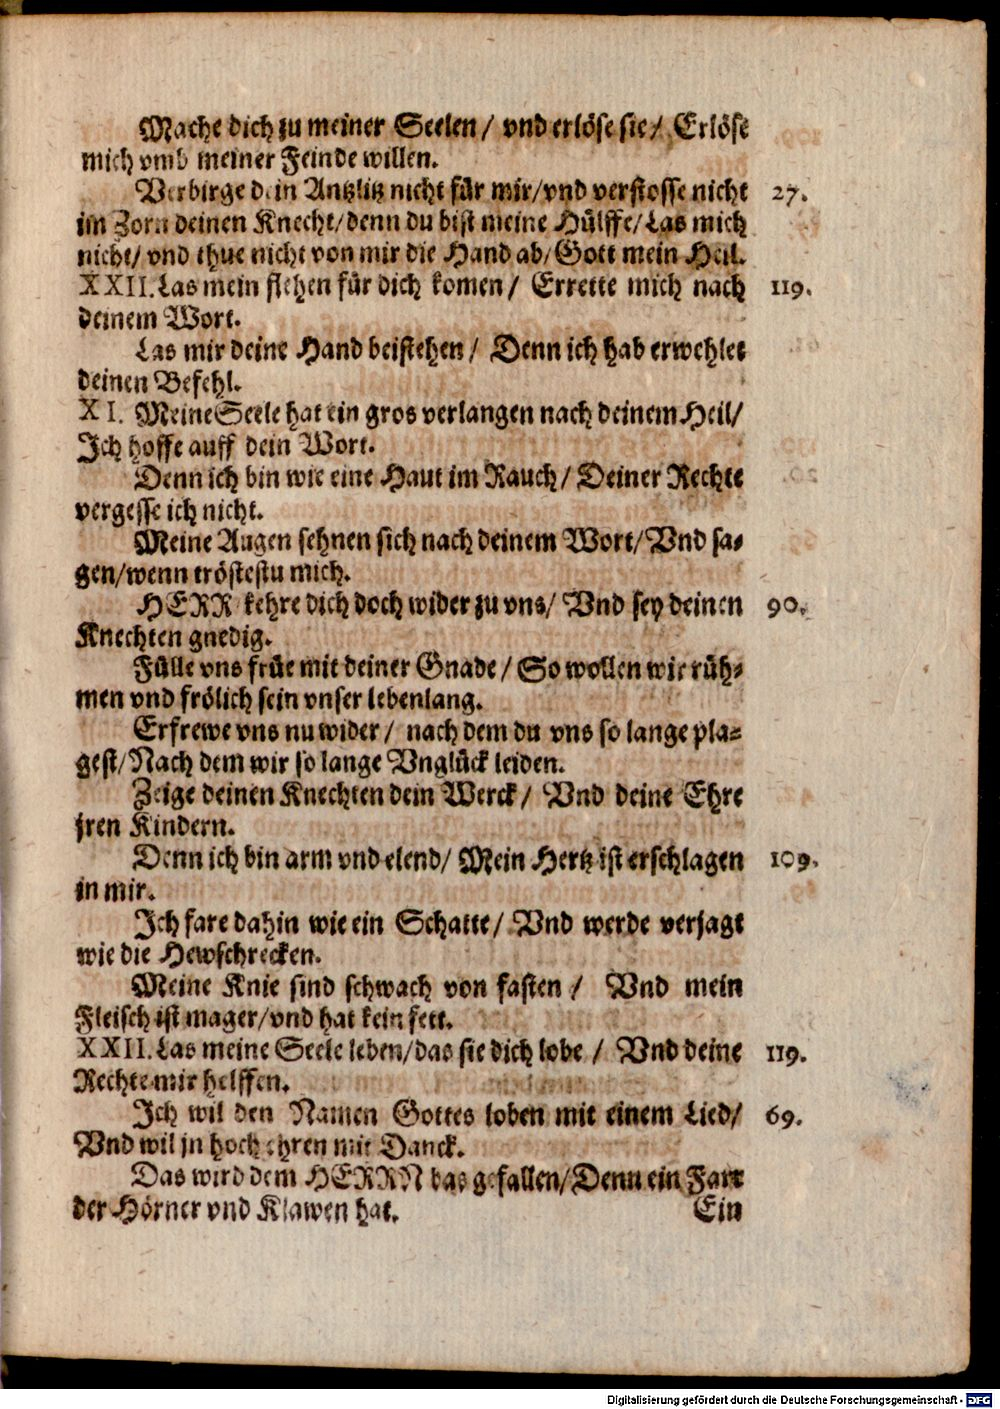 Mache dich zu meiner Seelen / vnd erlöse sie / Erlöse
mich vmb meiner Feinde willen.
Verbirge dein Antzlitz nicht für mir/vnd verstosse nicht 27.
im Zorn deinen Knecht/denn du bist meine Hülffe/Las mich
nicht/ vnd thue nicht von mir die Hand ab/Gott mein Heil.
XXII. Las mein flehen für dich komen / Errette mich nach 119.
deinem Wort.
Las mir deine Hand beistehen / Denn ich hab erwehlet
deinen Befehl.
XI. Meine Seele hat ein gros verlangen nach deinem Heil/
Ich hoffe auff dein Wort.
Denn ich bin wie eine Haut im Rauch / Deiner Rechte
vergesse ich nicht.
Meine Augen sehnen sich nach deinem Wort/Vnd sa-
gen/wenn tröstestu mich.
HERR kehre dich doch wider zu vns/ Vnd sey deinen 90.
Knechten gnedig.
Fülle vns früe mit deiner Gnade / So wollen wir rüh-
men vnd frölich sein vnser lebenlang.
Erfrewe vns nu wider / nach dem du vns so lange pla-
gest/Nach dem wir so lange Vnglück leiden.
Zeige deinen Knechten dein Werck / Vnd deine Ehre
jren Kindern.
Denn ich bin arm vnd elend/ Mein Hertz ist erschlagen 109.
in mir.
Ich fare dahin wie ein Schatte/ Vnd werde verjagt
wie die Hewschrecken.
Meine Knie sind schwach von fasten / Vnd mein
Fleisch ist mager/vnd hat kein fett.
XXII. Las meine Seele leben/das sie dich lobe / Vnd deine 119.
Rechte mir helffen.
Ich wil den Namen Gottes loben mit einem Lied/ 69.
Vnd wil jn hoch ehren mit Danck.
Das wird dem HERRN bas gefallen/Denn ein Farr
der Hörner vnd Klawen hat. Ein
Digitalisierung gefördert durch die Deutsche Forschungsgemeinschaft - DFG